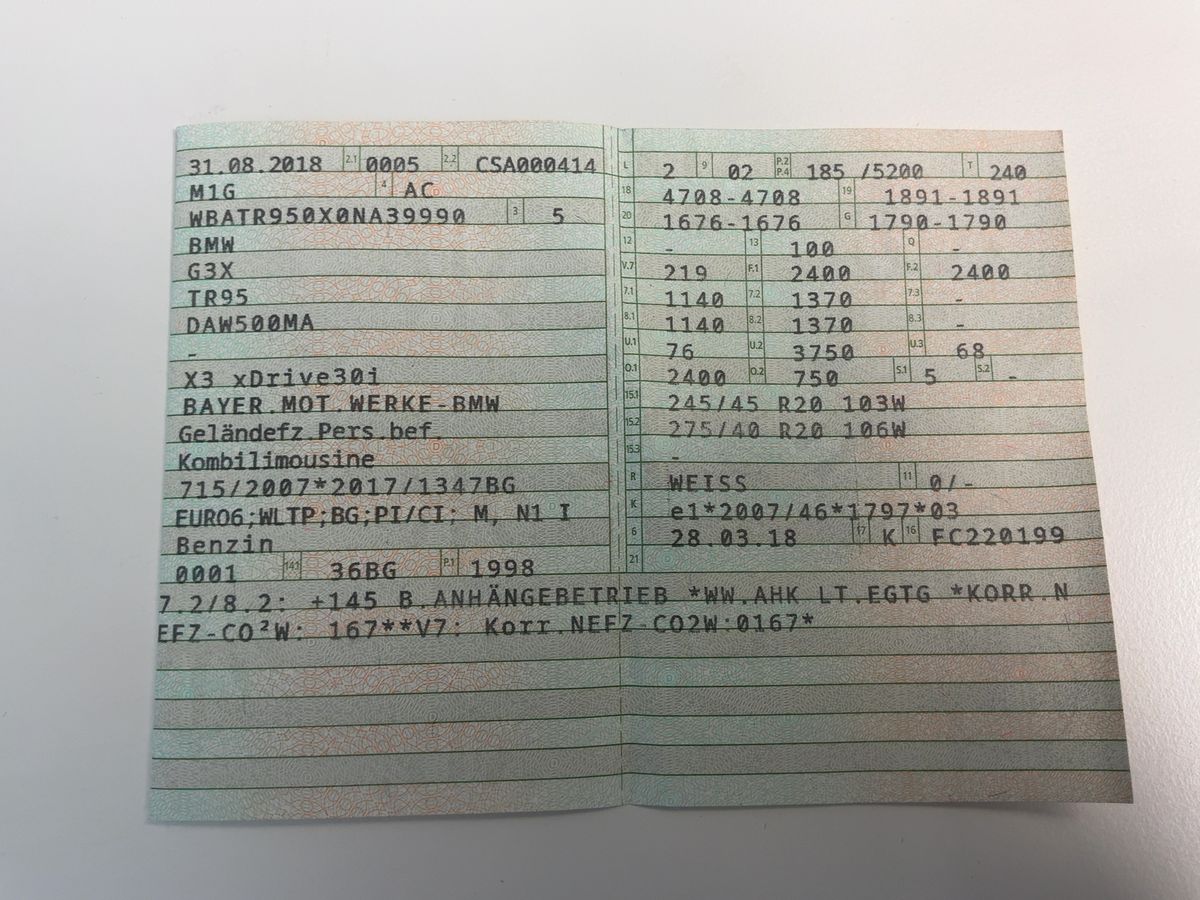 31.08.2018 2.1 0005 2.2 CSA000414
M1G 4 AC
WBATR950X0NA39990 3 5
BMW
G3X
TR95
DAW500MA
-
X3 xDrive30i
BAYER.MOT.WERKE-BMW
Geländefz.Pers.bef.
Kombilimousine
715/2007*2017/1347BG
EURO6;WLTP;BG;PI/CI; M, N1 I
Benzin
0001 14.1 36BG P.1 1998
L 2 9 02 P.2 P.4 185 /5200 T 240
18 4708-4708 19 1891-1891
20 1676-1676 G 1790-1790
12 - 13 100 Q -
V.7 219 F.1 2400 F.2 2400
7.1 1140 7.2 1370 7.3 -
8.1 1140 8.2 1370 8.3 -
U.1 76 U.2 3750 U.3 68
O.1 2400 O.2 750 S.1 5 S.2 -
15.1 245/45 R20 103W
15.2 275/40 R20 106W
15.3 -
R WEISS 11 0/-
K e1*2007/46*1797*03
6 28.03.18 17 K 16 FC220199
21
7.2/8.2: +145 B.ANHÄNGEBETRIEB *WW.AHK LT.EGTG *KORR.N
EFZ-CO²W: 167**V7: Korr.NEFZ-CO2W:0167*